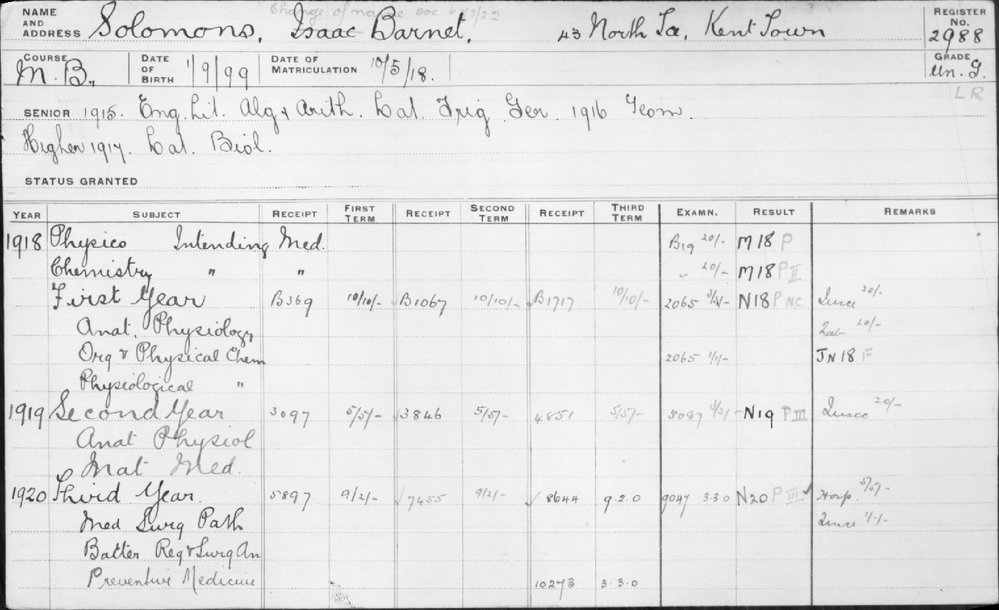 Change of name Doc 6/12/22
NAME AND ADDRESS Solomons, Isaac Barnet, 43 North Tce, Kent Town REGISTER No. 2988
COURSE M.B., DATE OF BIRTH 1/9/99 DATE OF MATRICULATION 10/5/18. GRADE Un. G.
LR
SENIOR 1915. Eng. Lit. Alg & Arith. Lat. Trig. Ger. 1916 Geom.
Higher 1917. Lat. Biol.
STATUS GRANTED
YEAR SUBJECT RECEIPT FIRST TERM RECEIPT SECOND TERM RECEIPT THIRD TERM EXAMN. RESULT REMARKS
1918 Physics Intending Med. B19 20/- M18 P
Chemistry " " " 20/- M18 P II
First Year B369 10/10/- B1067 10/10/- B1717 10/10/- 2065 N18 P NC 20/-
Anat. Physiology 20/-
Org & Physical Chem 2065 1/1/- JN18 F
Physiological "
1919 Second Year 3097 5/5/- 3846 5/5/- 4851 5/5/- 5087 N19 P III 20/-
Anat Physiol
Mat Med.
1920 Third Year. 5897 9/2/- 7455 9/2/- 8644 9.2.0 9047 3.3.0 N20 P III Hosp.
Med Surg Path 1/1/-
Batter Reg & Surg An
Preventive Medicine 10273 3.3.0